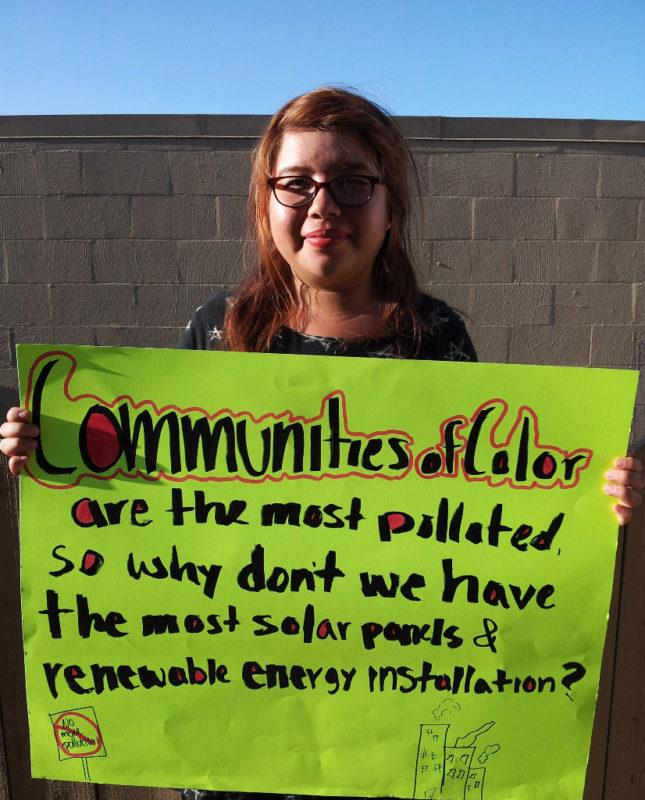 Communities of Color
are the most polluted,
so why don't we have
the most solar panels &
renewable energy installation?
No
more
pollution